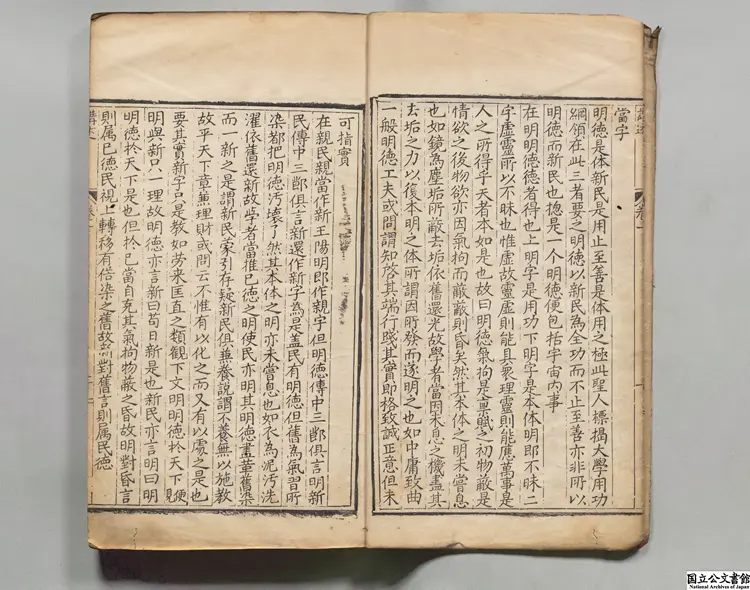 當字
明德是体新民是用止至善是体用之極此聖人標揭大學用功
綱領在此三者要之明德以新民為全功而不止至善亦非所以
明德而新民也摠是一个明德便包括宇宙内事
在明明德德者得也上明字是用功下明字是本体明即不昧二
字虚靈所以不昧也惟虚故靈虚則能具衆理靈則能應萬事是
人之所得乎天者本如是也故曰明德氣拘是禀賦之初物蔽是
情欲之後物欲亦因氣拘而蔽蔽則昏矣然其本体之明未嘗息
也如鏡為塵垢所蔽去垢依舊還光故學者當因未息之機盡其
去垢之力以復本明之体所謂因所發而遂明之也如中庸致曲
一般明德工夫或問謂知啓其端行踐其實即格致誠正意但未
可指實
在親民親當作新王陽明即作親字但明德傳中三節俱言明新
民傳中三節俱言新還作新字為是盖民有明德但舊為氣習所
染都把明德汚壞了然其本体之明亦未嘗息也如衣為泥汚洗
濯依舊還新故學者當推已德之明使民亦明其明德盡革舊染
而一新之是謂新民蒙引存疑新民俱兼養説謂不養無以施教
故平天下章兼理財或問云不惟有以化之而又有以處之是也
要其實新字只是教如勞来匡直之類觀下文明明德於天下便見
明與新只一理故明德亦言新曰苟日新是也新民亦言明曰明
明德於天下是也但於已當自克其氣拘物蔽之昏故明對昏言
則属已德民視上轉移有俗染之舊故新對舊言則属民德
国立公文書館
National Archives of Japan